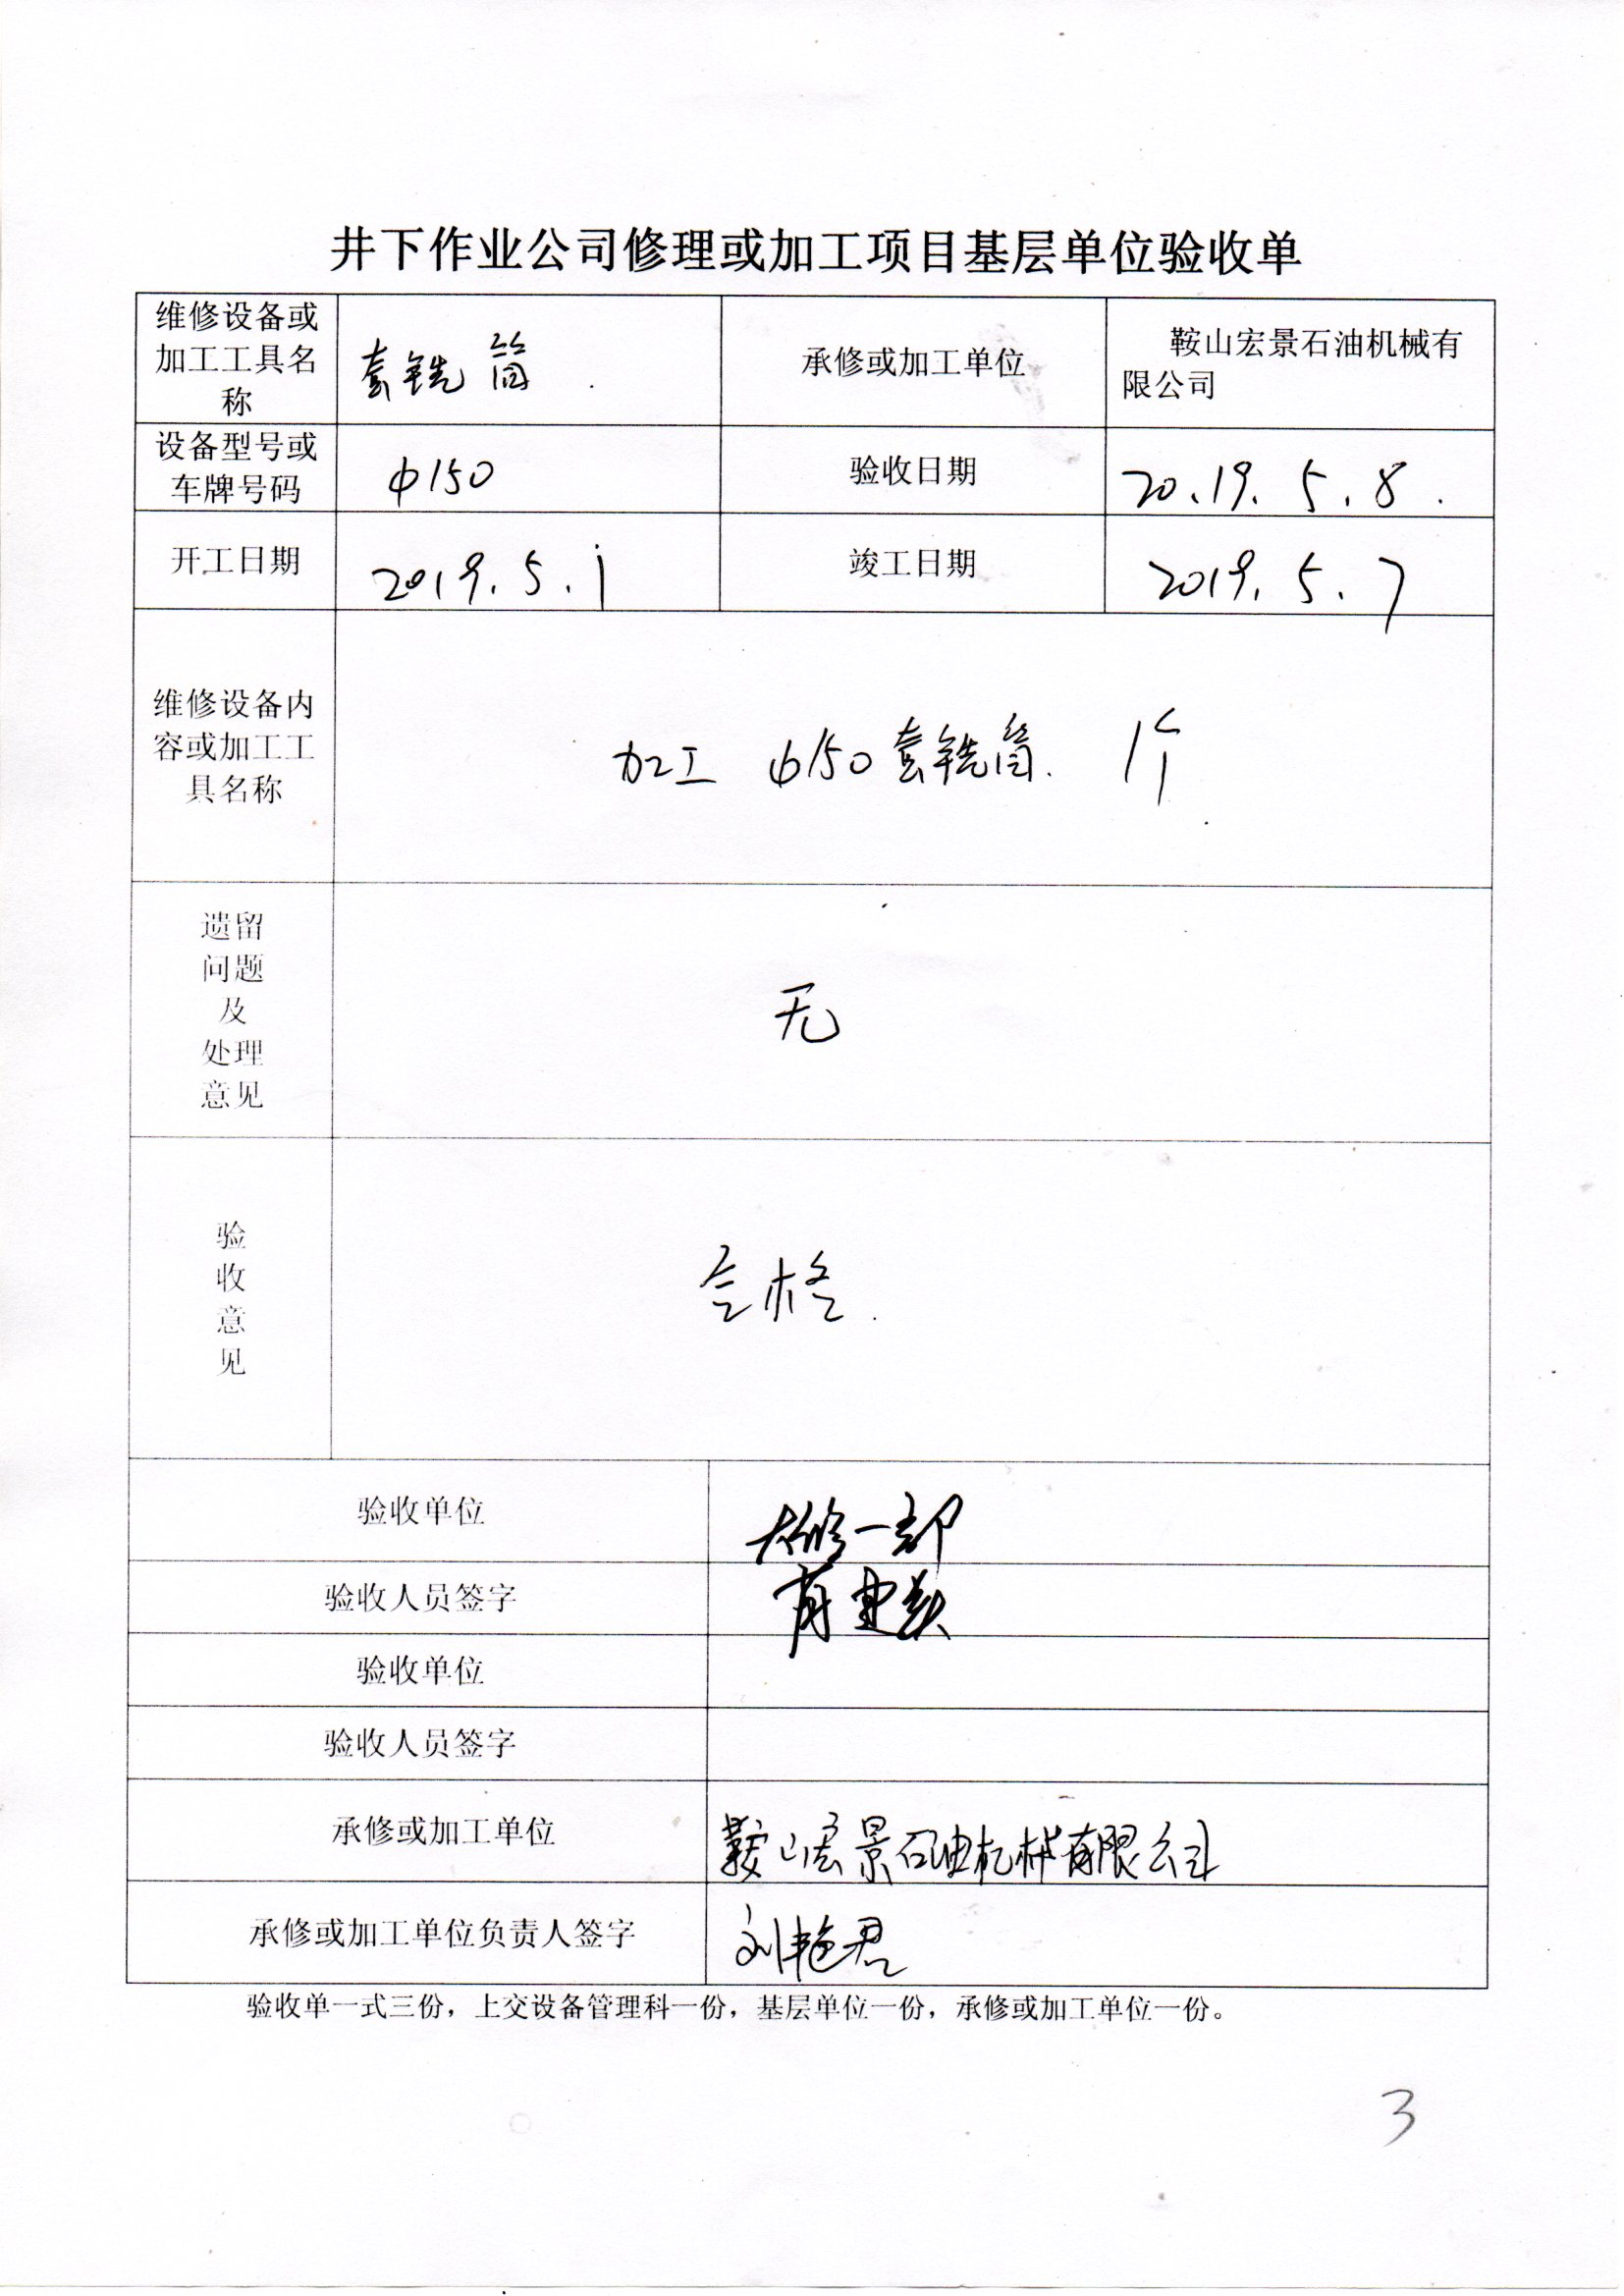 井下作业公司修理或加工项目基层单位验收单
维修设备或
加工工具名
称
套铣筒
承修或加工单位
鞍山宏景石油机械有
限公司
设备型号或
车牌号码
φ150
验收日期
20.19.5.8.
开工日期
2019.5.1
竣工日期
2019.5.7
维修设备内
容或加工工
具名称
加工 φ150套铣筒. 1个
遗留
问题
及
处理
意见
无
验
收
意
见
合格.
验收单位
大修一部
验收人员签字
验收单位
验收人员签字
承修或加工单位
鞍山宏景石油机械有限公司
承修或加工单位负责人签字
刘艳君
验收单一式三份，上交设备管理科一份，基层单位一份，承修或加工单位一份。
3